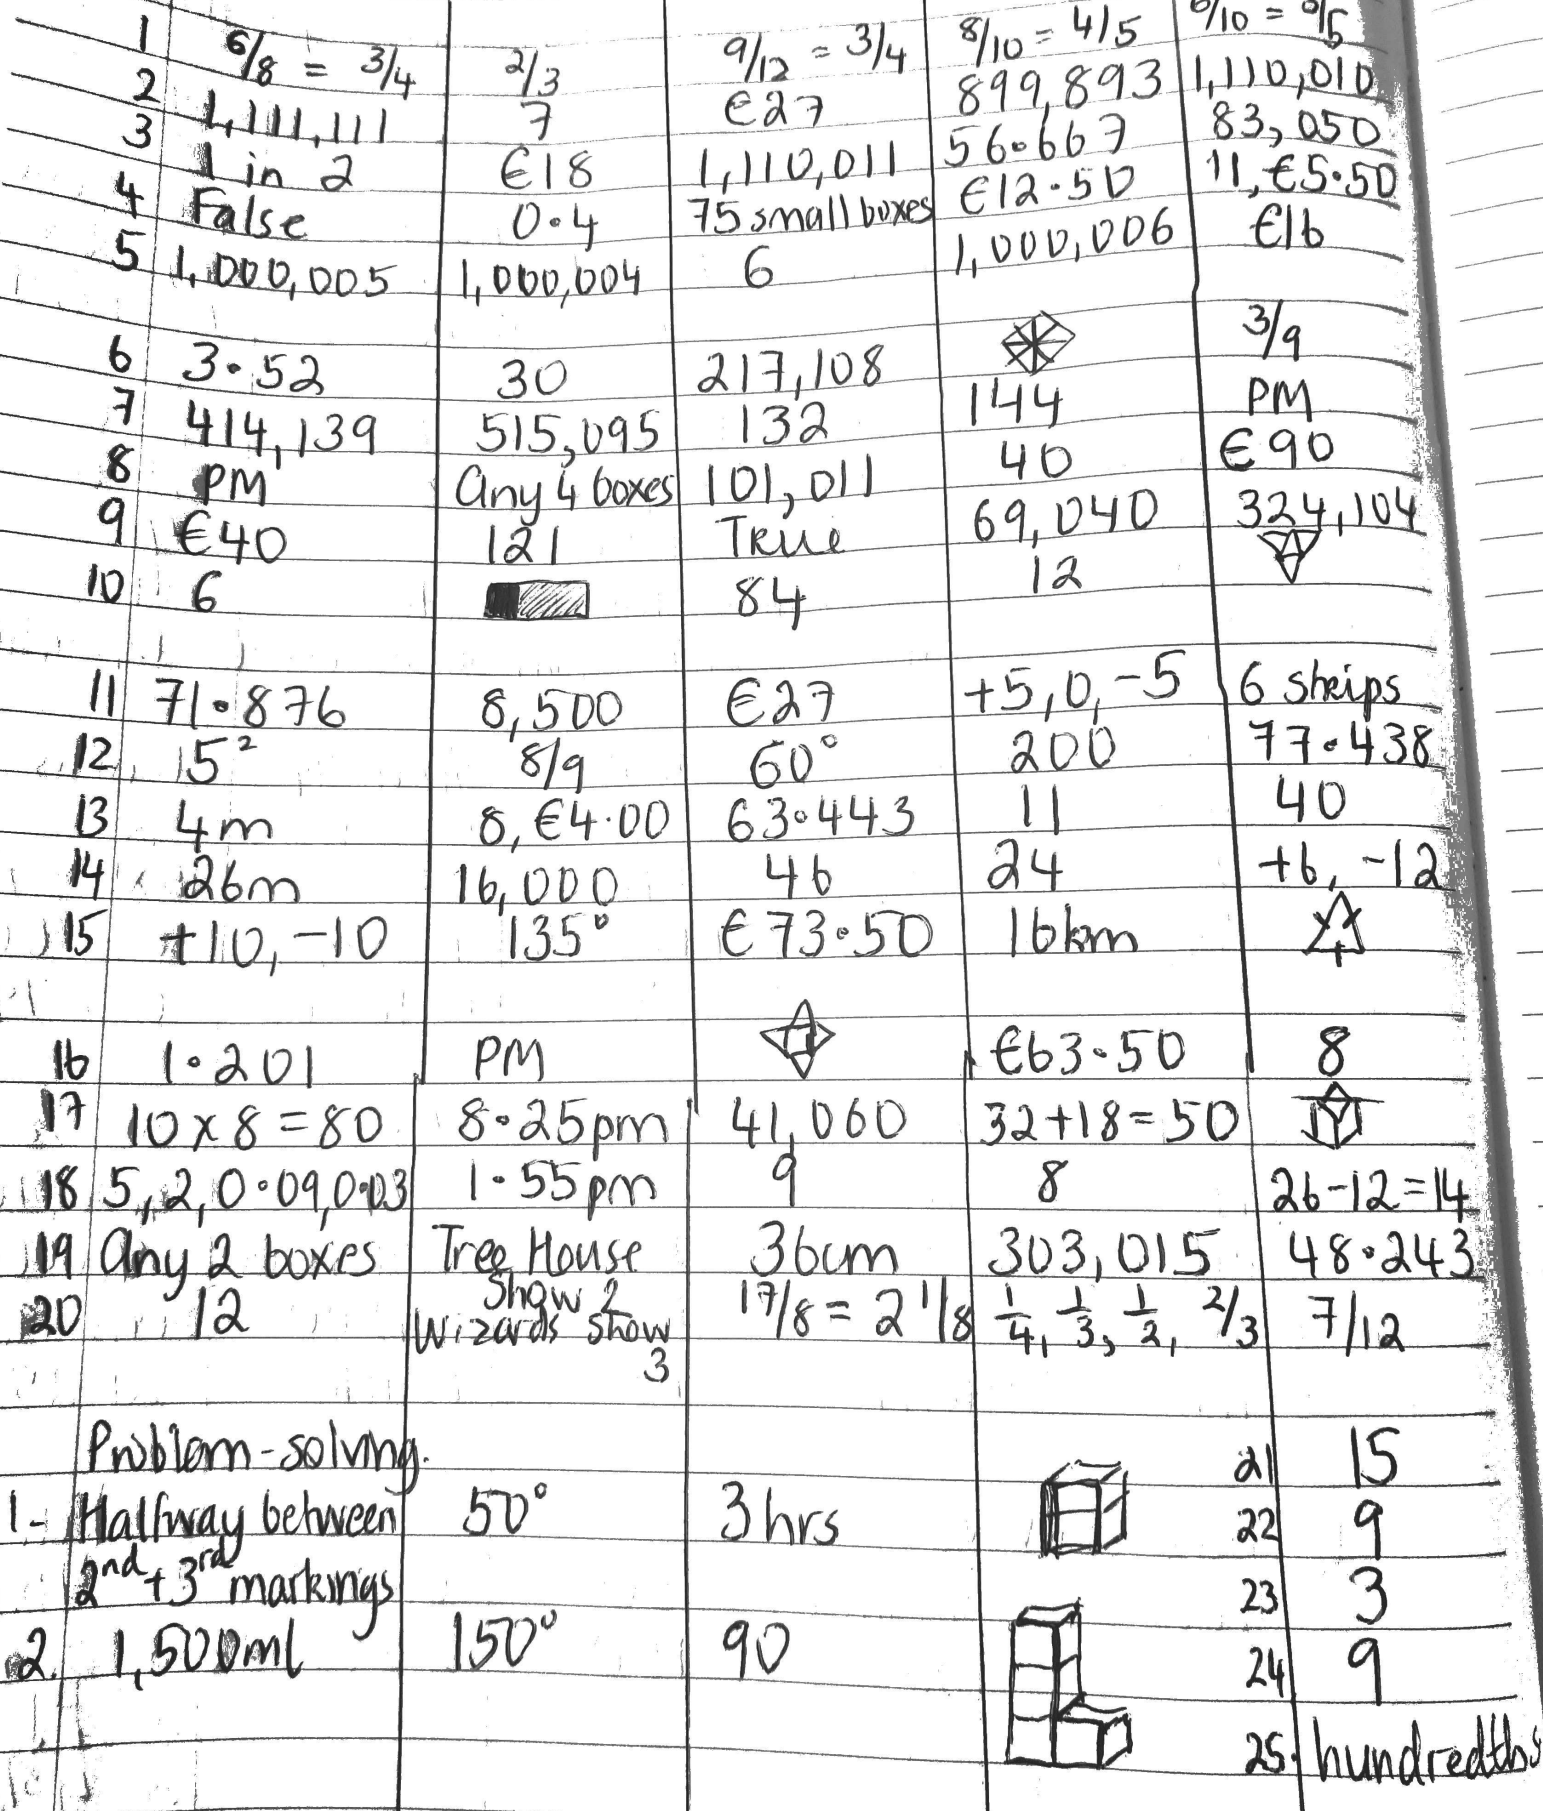 1 6/8 = 3/4 2/3 9/12 = 3/4 8/10 = 4/5 /10 = /5
2 1,111,111 7 €27 899,893 1,110,010
3 1 in 2 €18 1,110,011 56.667 83,050
4 False 0.4 75 small boxes €12.50 11, €5.50
5 1,000,005 1,000,004 6 1,000,006 €16
6 3.52 30 217,108 3/9
7 414,139 515,095 132 144 PM
8 PM Any 4 boxes 101,011 40 €90
9 €40 121 True 69,040 324,104
10 6 84 12
11 71.876 8,500 €27 +5, 0, -5 6 strips
12 15² 8/9 60° 200 77.438
13 4m 8, €4.00 63.443 11 40
14 26m 16,000 46 24 +6, -12
15 +10, -10 135° €73.50 16km
16 1.201 PM €63.50 8
17 10 x 8 = 80 8.25pm 41,060 32+18=50
18 5, 2, 0.09, 0.03 1.55pm 9 8 26-12=14
19 Any 2 boxes Tree House 36cm 303,015 48.243
Show 2
20 12 Wizards Show 17/8 = 2 1/8 1/4, 1/3, 1/2, 2/3 7/12
3
Problem-solving. 21 15
1- Halfway between 50° 3hrs 22 9
2nd + 3rd markings 23 3
2. 1,500ml 150° 90 24 9
25. hundredths